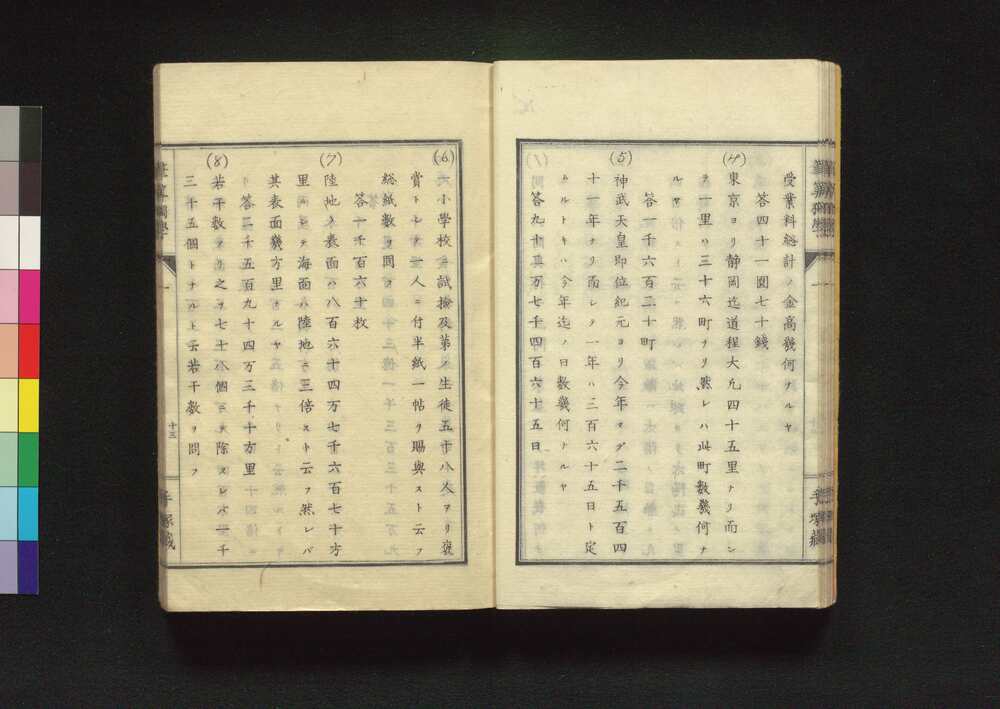 受業料総計ノ金高幾何ナルヤ
答四十一圓七十錢
(4)
東京ヨリ静岡迄道程大凡四十五里ナリ而シ
テ一里ハ三十六町ナリ然レハ此町数幾何ナ
ルヤ
答一千六百二十町
(5)
神武天皇即位紀元ヨリ今年マデ二千五百四
十一年ナリ而シテ一年ハ三百六十五日ト定
ムルトキハ今年迄ノ日数幾何ナルヤ
答九十二万七千四百六十五日
(6)
小學校ニ試撿及第ノ生徒五十八人アリ褒
賞トシテ一人ニ付半紙一帖ヲ賜與スト云フ
総紙数ヲ問フ
答一千百六十枚
(7)
陸地ノ表面ハ八百六十四万七千六百七十方
里ニシテ海面ハ陸地ニ三倍スト云フ然レバ
其表面幾方里ナルヤ
答二千五百九十四万三千十方里
(8)
若干数アリ之ヲ七十八個ニテ除スレバ一千
三十五個トナルト云若干数ヲ問フ
十三
手塚蔵